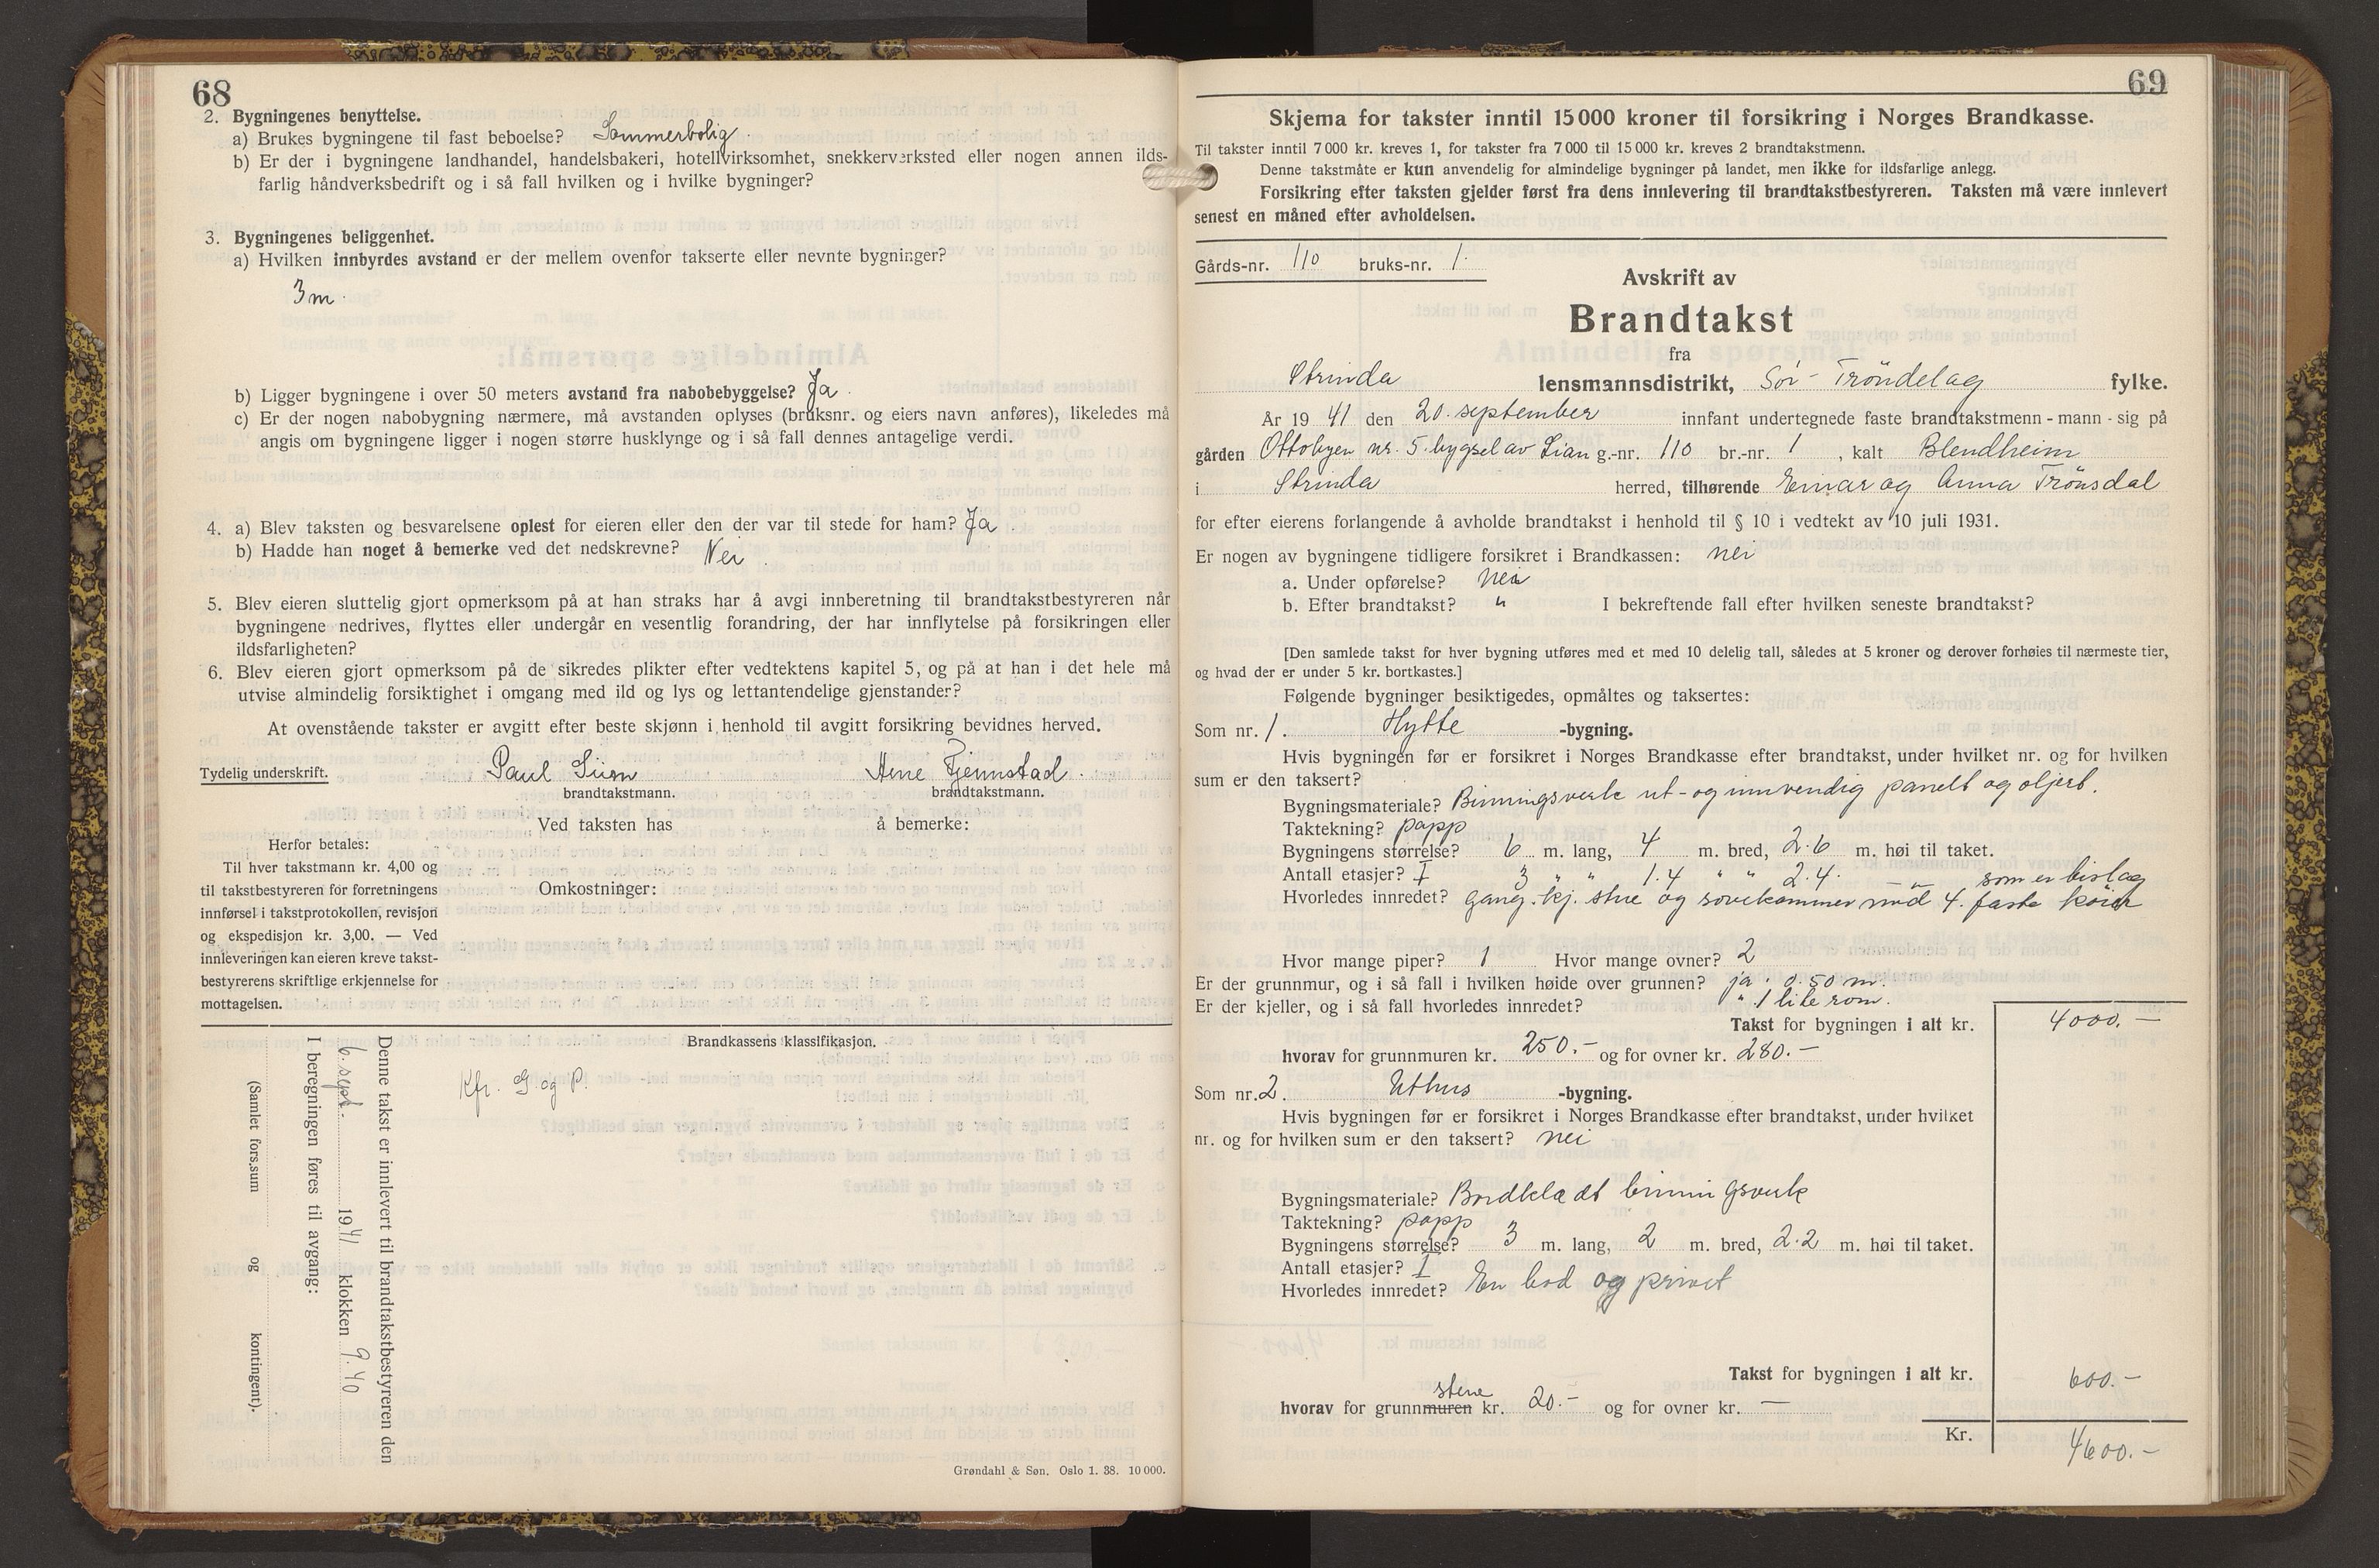 68
2. Bygningenes benyttelse.
a) Brukes bygningene til fast beboelse? Sommerbolig
b) Er der i bygningene landhandel, handelsbakeri, hotellvirksomhet, snekkerverksted eller nogen annen ilds-
farlig håndverksbedrift og i så fall hvilken og i hvilke bygninger?
3. Bygningenes beliggenhet.
a) Hvilken innbyrdes avstand er der mellem ovenfor takserte eller nevnte bygninger?
3 m.
b) Ligger bygningene i over 50 meters avstand fra nabobebyggelse? Ja.
c) Er der nogen nabobygning nærmere, må avstanden oplyses (bruksnr. og eiers navn anføres), likeledes må
angis om bygningene ligger i nogen større husklynge og i så fall dennes antagelige verdi.
4. a) Blev taksten og besvarelsene oplest for eieren eller den der var til stede for ham? Ja.
b) Hadde han noget å bemerke ved det nedskrevne? Nei
5. Blev eieren sluttelig gjort opmerksom på at han straks har å avgi innberetning til brandtakstbestyreren når
bygningene nedrives, flyttes eller undergår en vesentlig forandring, der har innflytelse på forsikringen eller
ildsfarligheten?
6. Blev eieren gjort opmerksom på de sikredes plikter efter vedtektens kapitel 5, og på at han i det hele må
utvise almindelig forsiktighet i omgang med ild og lys og lettantendelige gjenstander?
At ovenstående takster er avgitt efter beste skjønn i henhold til avgitt forsikring bevidnes herved.
Tydelig underskrift. Paul Arne Fjermstad.
brandtakstmann. brandtakstmann.
Ved taksten has å bemerke:
Herfor betales:
Til hver takstmann kr. 4,00 og
til takstbestyreren for forretningens
innførsel i takstprotokollen, revisjon
og ekspedisjon kr. 3,00. — Ved
innleveringen kan eieren kreve takst-
bestyrerens skriftlige erkjennelse for
mottagelsen.
Omkostninger:
Brandkassens klassifikasjon.
Kfr. G. og P.
Denne takst er innlevert til brandtakstbestyreren den
6. sept. 1941 klokken 9.40
I beregningen føres til avgang:
(Samlet fors.sum og kontingent).
Grøndahl & Søn. Oslo 1. 38. 10 000.
69
Skjema for takster inntil 15 000 kroner til forsikring i Norges Brandkasse.
Til takster inntil 7 000 kr. kreves 1, for takster fra 7 000 til 15 000 kr. kreves 2 brandtakstmenn.
Denne takstmåte er kun anvendelig for almindelige bygninger på landet, men ikke for ildsfarlige anlegg.
Forsikring efter taksten gjelder først fra dens innlevering til brandtakstbestyreren. Taksten må være innlevert
senest en måned efter avholdelsen.
Gårds-nr. 110 bruks-nr. 1.
Avskrift av
Brandtakst
fra
Strinda lensmannsdistrikt, Sör-Tröndelag fylke.
År 1941 den 20. september innfant undertegnede faste brandtakstmenn - mann - sig på
gården Ottobyen nr. 5. bygsel av Lian g.-nr. 110 br.-nr. 1, kalt Blendheim
i Strinda herred, tilhørende Einar og Anna Trönsdal
for efter eierens forlangende å avholde brandtakst i henhold til § 10 i vedtekt av 10 juli 1931.
Er nogen av bygningene tidligere forsikret i Brandkassen: nei
a. Under opførelse? nei
b. Efter brandtakst? " I bekreftende fall efter hvilken seneste brandtakst?
[Den samlede takst for hver bygning utføres med et med 10 delelig tall, således at 5 kroner og derover forhøies til nærmeste tier,
og hvad der er under 5 kr. bortkastes.]
Følgende bygninger besiktigedes, opmåltes og taksertes:
Som nr. 1. Hytte -bygning.
Hvis bygningen før er forsikret i Norges Brandkasse efter brandtakst, under hvilket nr. og for hvilken
sum er den taksert?
Bygningsmateriale? Binningsverk ut- og innvendig panelt og oljert.
Taktekning? papp
Bygningens størrelse? 6 m. lang, 4 m. bred, 2.6 m. høi til taket.
Antall etasjer? I 3 " " 1.4 " " 2.4. — " — som er bislag
Hvorledes innredet? gang. kj. stue og sovekammer med 4. faste köier
Hvor mange piper? 1 Hvor mange ovner? 2
Er der grunnmur, og i så fall i hvilken høide over grunnen? ja. 0.50 m.
Er der kjeller, og i så fall hvorledes innredet? " 1 lite rom.
Takst for bygningen i alt kr. 4000.—
hvorav for grunnmuren kr. 250.— og for ovner kr. 280.—
Som nr. 2. Uthus -bygning.
Hvis bygningen før er forsikret i Norges Brandkasse efter brandtakst, under hvilket
nr. og for hvilken sum er den taksert? nei
Bygningsmateriale? Bordklædt binningsverk
Taktekning? papp
Bygningens størrelse? 3 m. lang, 2 m. bred, 2.2 m. høi til taket.
Antall etasjer? I
Hvorledes innredet? En bod og privet
Takst for bygningen i alt kr. 600.—
stene
hvorav for grunnmuren kr. 20.— og for ovner kr. —
Kr. 4600.—